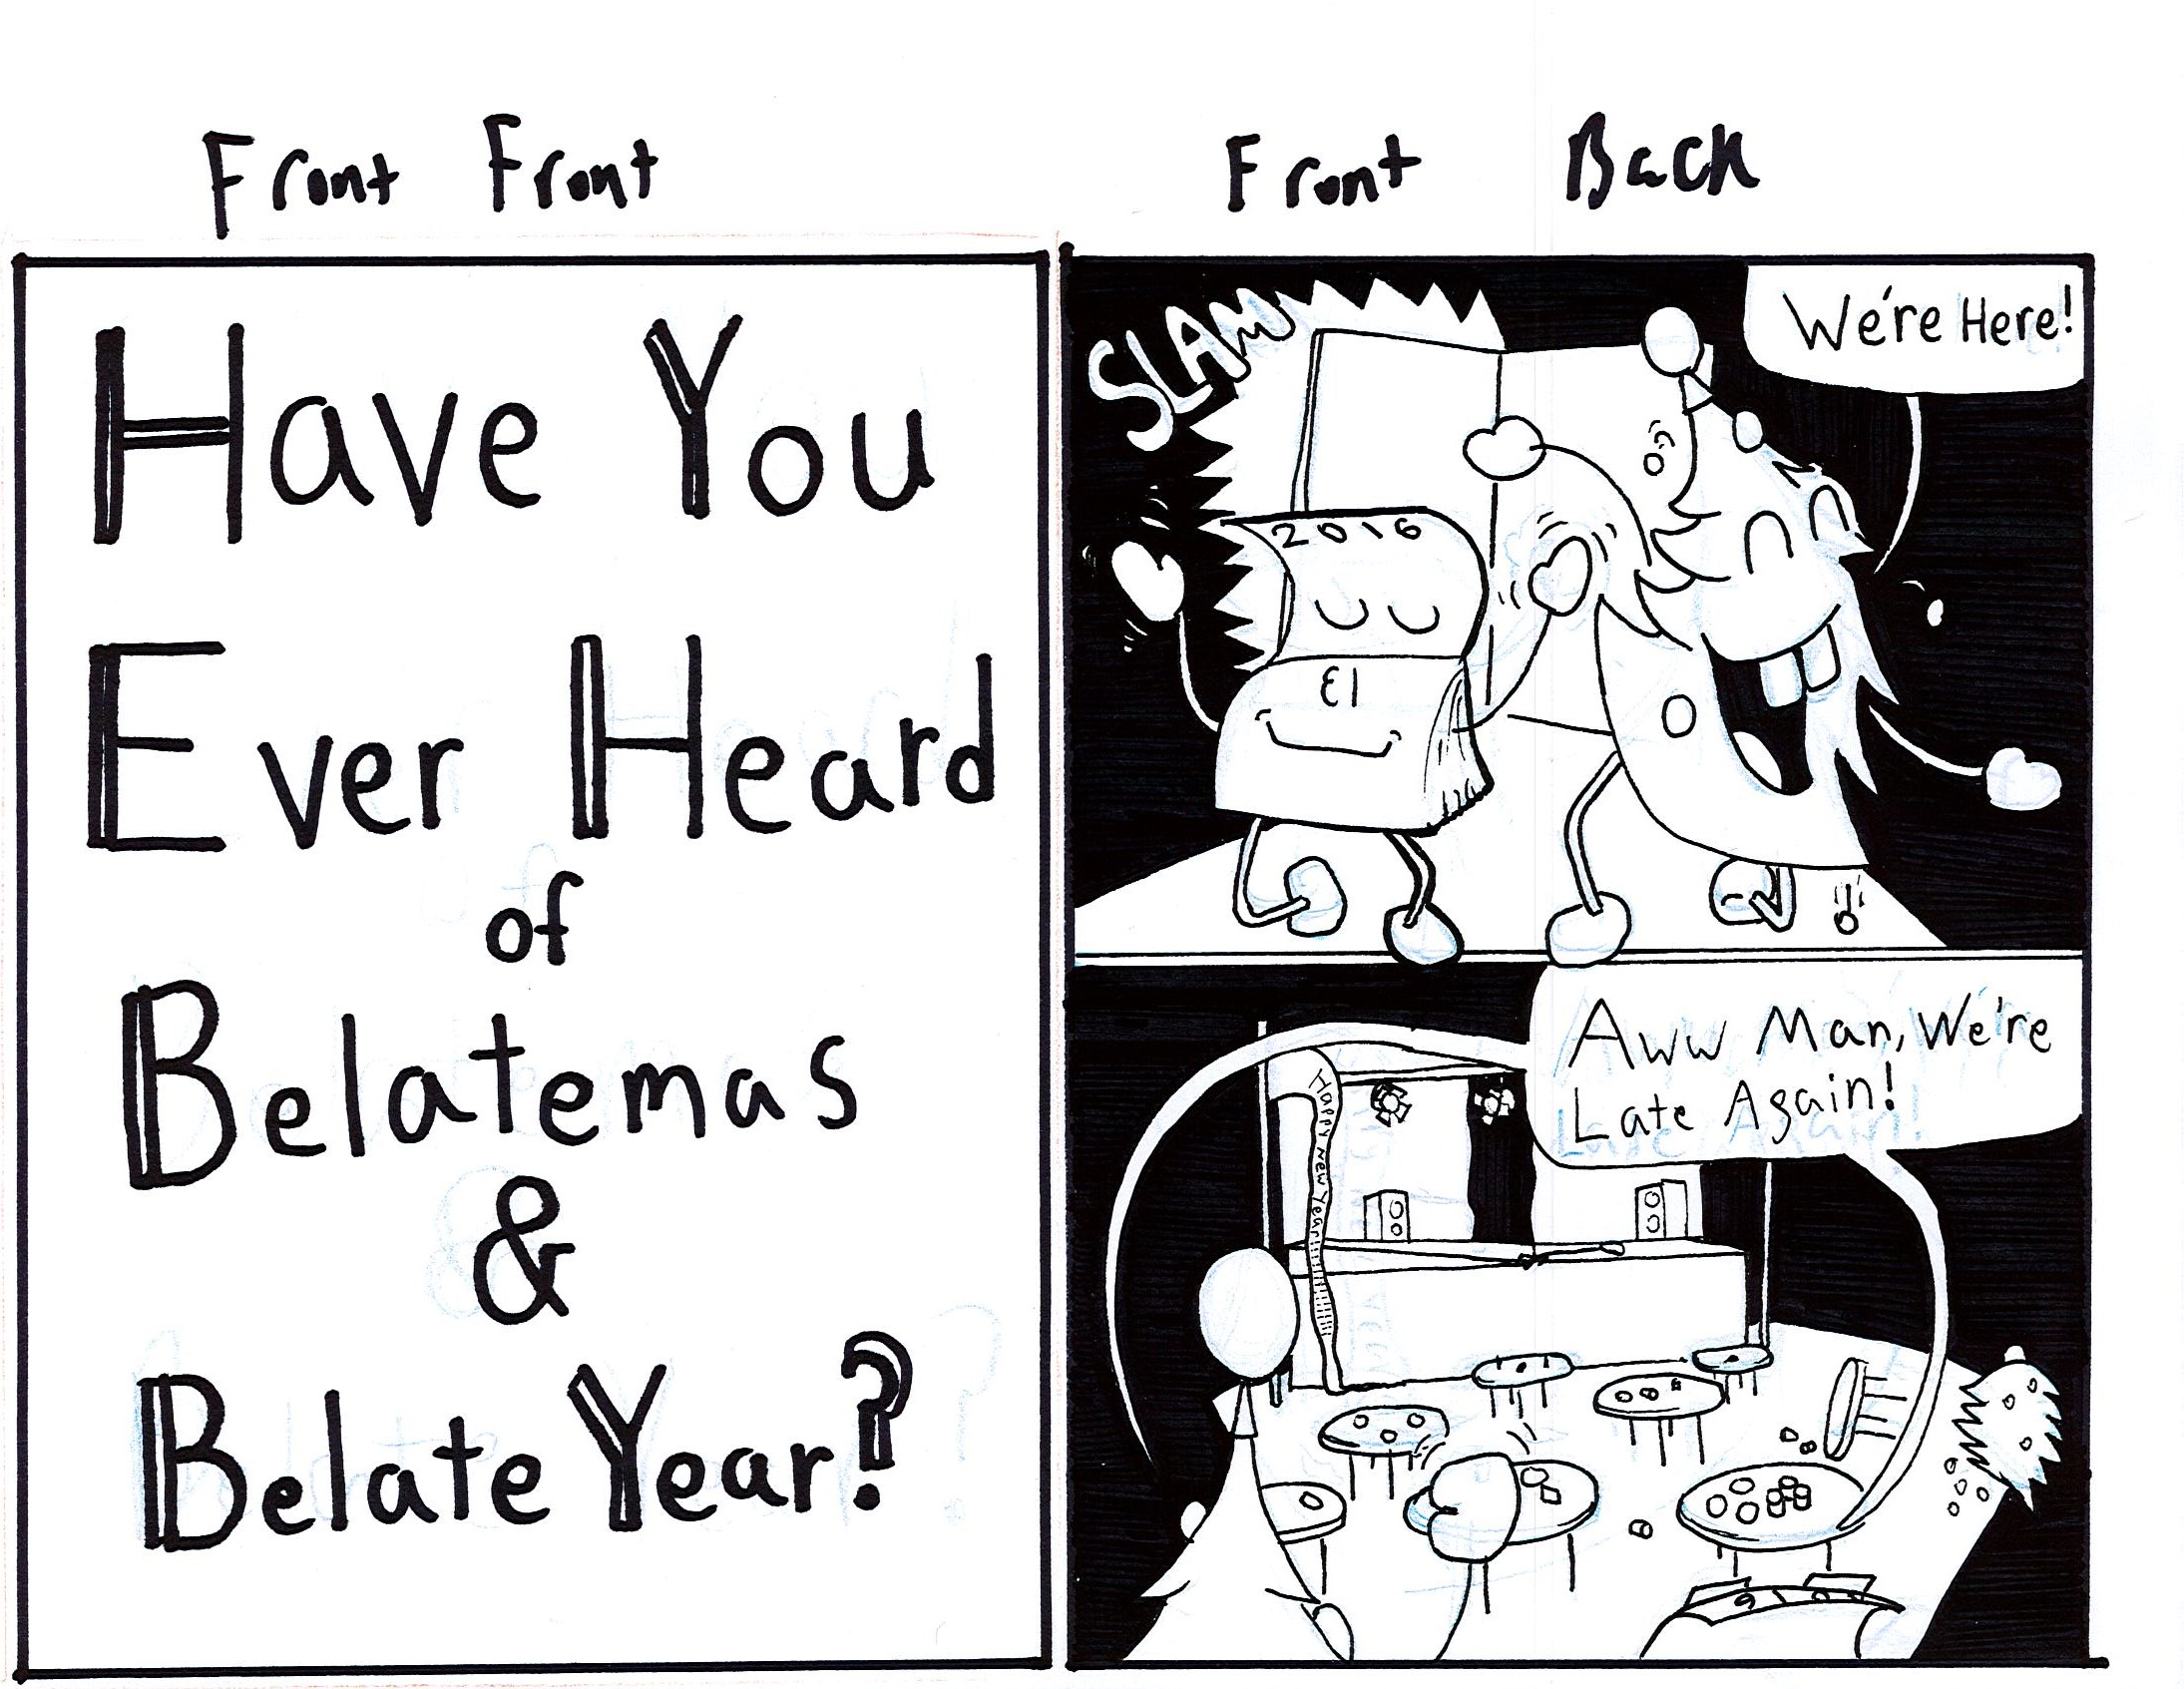 Front Front
Have You
Ever Heard
of
Belatemas
&
Belate Year?
Front Back
SLAM
We're Here!
2016
31
Aww Man, We're
Late Again!
Happy New Year!!!!!!!!!!